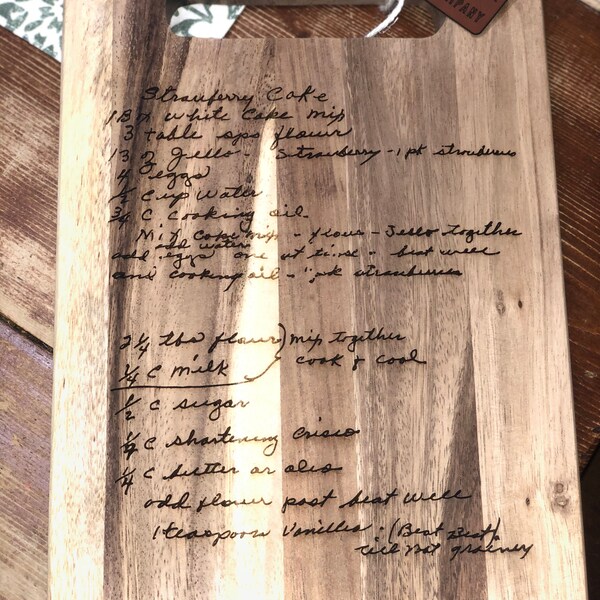 PANY
Strawferry Cake
1 Bx White Cake mix
3 table spo flour
1 3 oz Jello - Strawberry - 1 pk strawberries
4 eggs
½ Cup Water
¾ C Cooking oil
Mix Cake mix - flour - Jello together
add water
add eggs one at time - beat well
and cooking oil - " pk strawberries
2 ¼ tbs flour) mix together
¼ C milk cook & cool
½ C sugar
¼ C shortening Crisco
¼ C butter or oleo
add flour past beat well
1 teaspoon Vanillia: (Beat Best)
till not grainey